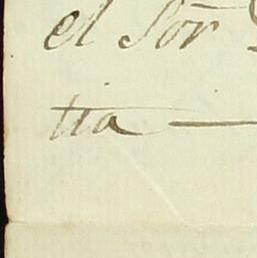 el Sōr
tia —